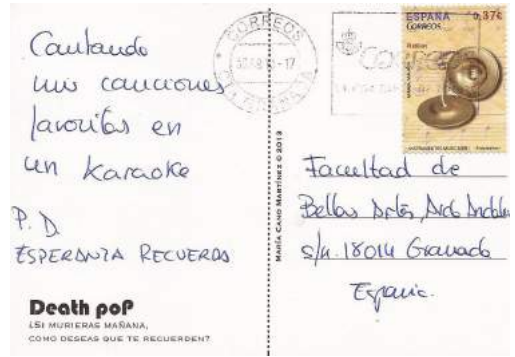 Cantando
mis canciones
favoritas en
un Karaoke
P. D.
ESPERANZA RECUERDA
Death poP
¿SI MURIERAS MAÑANA,
COMO DESEAS QUE TE RECUERDEN?
MARÍA CANO MARTÍNEZ © 2013
CORREOS
ESPAÑA 0,37€
CORREOS
Facultad de
Bellas Artes, Avda
s/n. 18014 Granada
España.